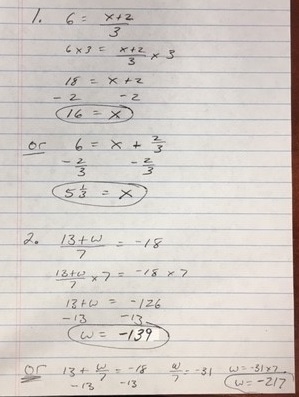 1. 6 = x+2/3
6 x 3 = x+2/3 x 3
18 = x+2
-2 -2
16 = x
or 6 = x + 2/3
-2/3 -2/3
5 1/3 = x
2. 13+w/7 = -18
13+w/7 x 7 = -18 x 7
13+w = -126
-13 -13
w = -139
or 13 + w/7 = -18 w/7 = -31 w = -31x7
-13 -13 w = -217